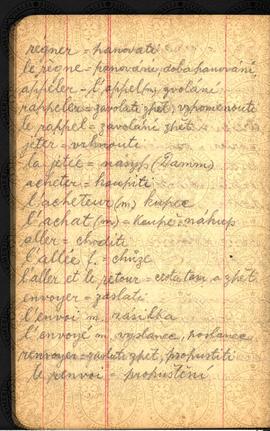 regner = panovati
le règne = panování, doba panování,
appeler = l'appel (m) zvolání
rappeler = zavolati zpět, vzpomenouti
le rappel = zavolání zpět
jeter = vrhnouti
la jetée = násyp (Damm)
acheter = koupiti
l'acheteur (m) kupec
l'achat (m) = koupě = nákup
aller = choditi
l'allée f. = chůze
l'aller et le retour = cesta tam a zpět
envoyer = zaslati
l'envoi m. zásilka
l'envoyé m. vyslanec, poslanec
renvoyer = zaslati zpět, propustiti
le renvoi = propuštění